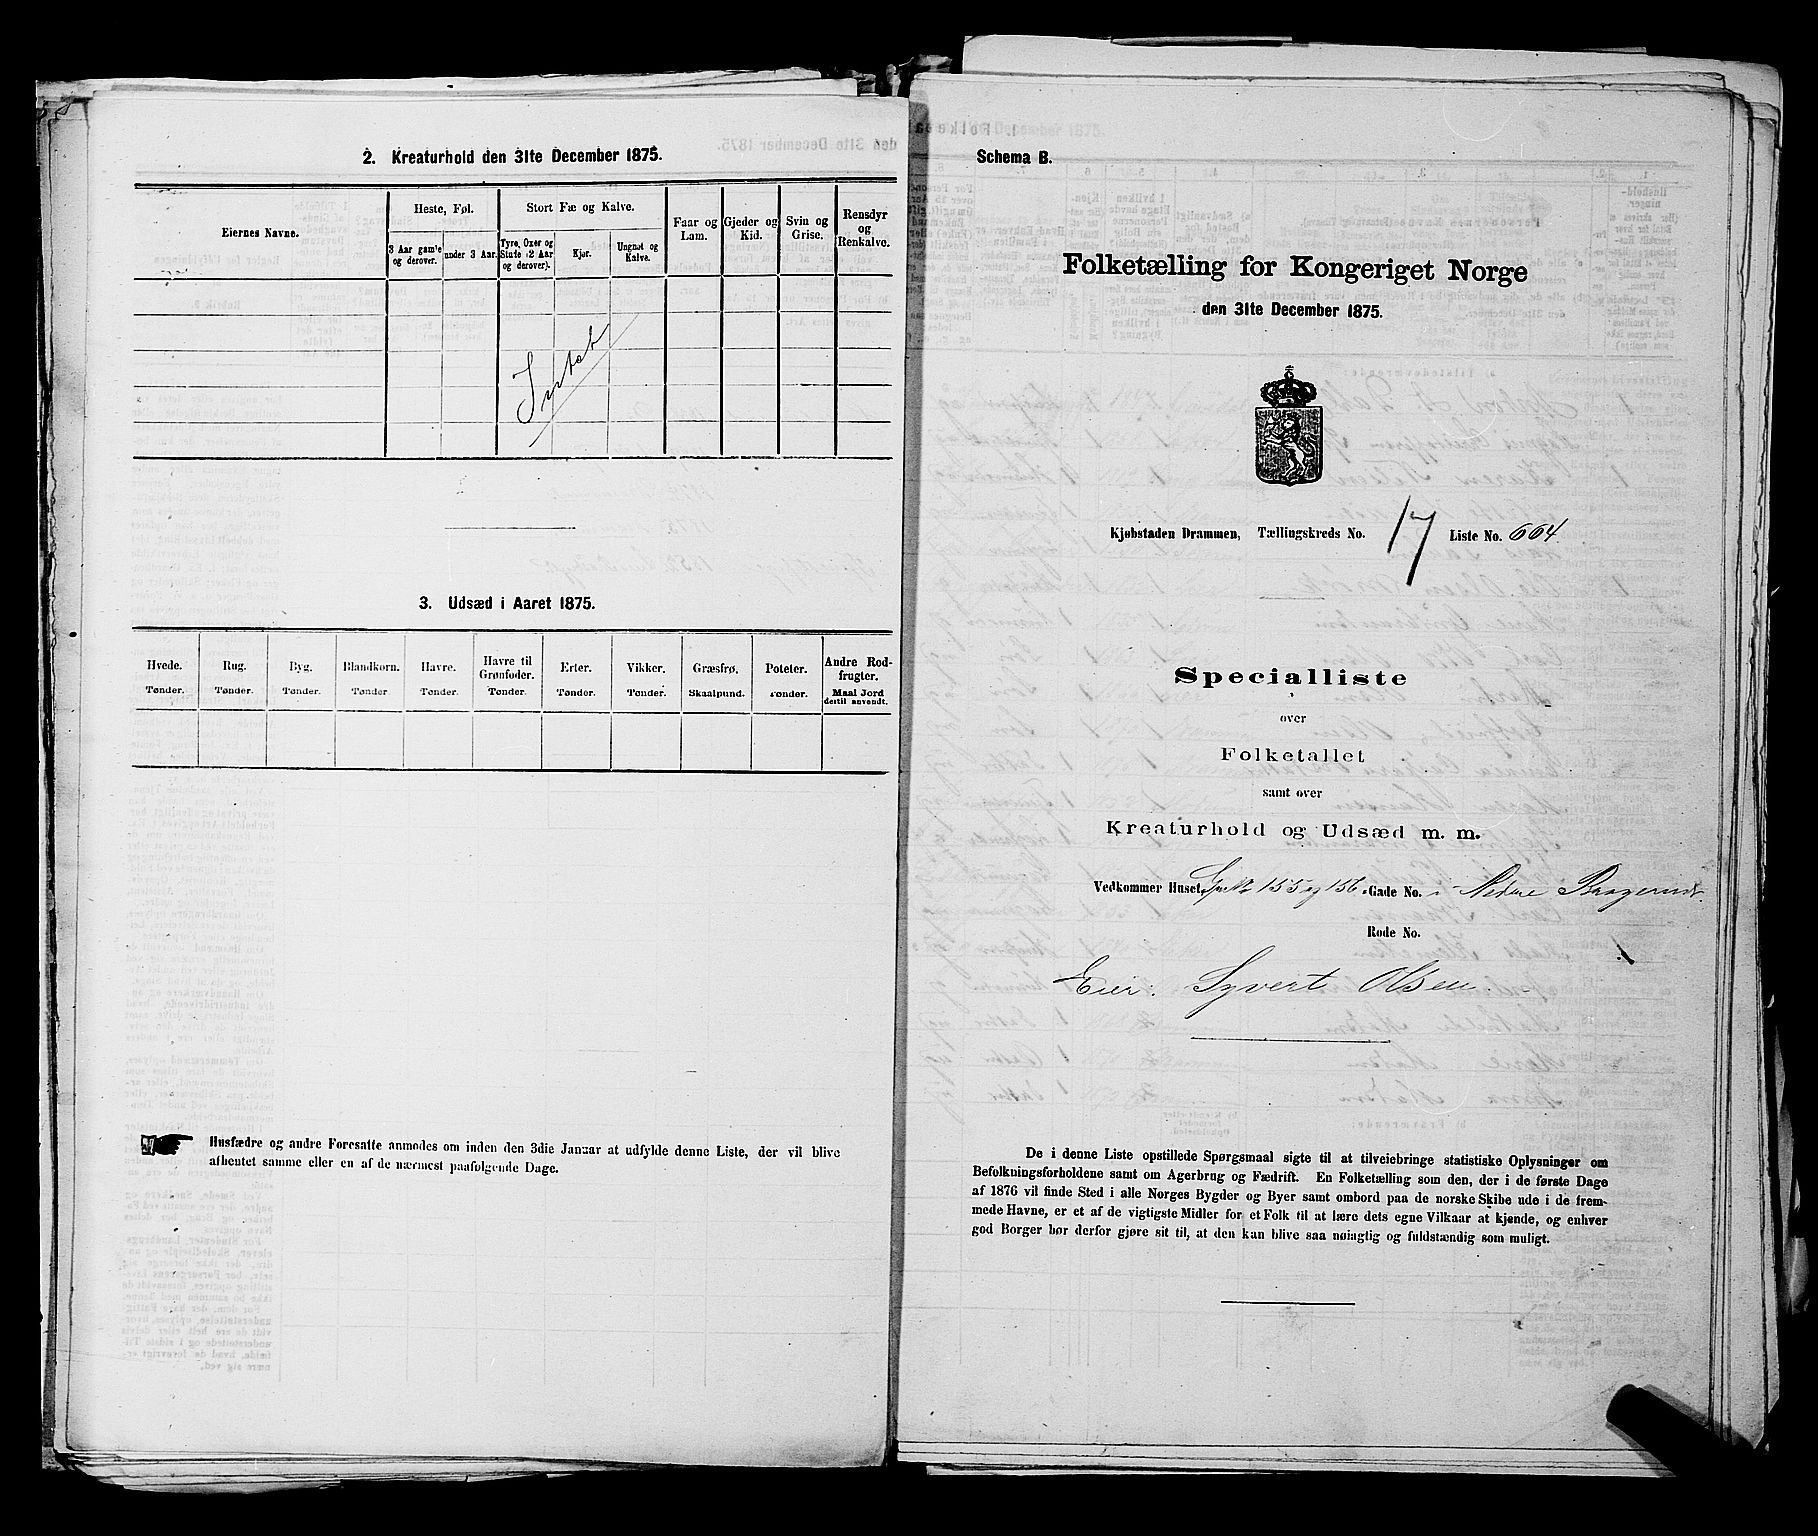 2. Kreaturhold den 31te December 1875.
Eiernes Navne.
Heste, Føl.
Stort Fæ og Kalve.
Faar og Lam.
Gjeder og Kid.
Svin og Grise.
Rensdyr og Renkalve.
3 Aar gamle og derover.
under 3 Aar.
Tyre, Oxer og Stute (2 Aar og derover).
Kjør.
Ungnøt og Kalve.
Intet
3. Udsæd i Aaret 1875.
Hvede. Rug. Byg. Blandkorn. Havre. Havre til Grønfoder. Erter. Vikker. Græsfrø. Poteter. Andre Rodfrugter.
Tønder. Tønder. Tønder. Tønder Tønder. Tønder. Tønder. Tønder. Skaalpund. Tønder. Maal Jord dertil anvendt.
Husfædre og andre Foresatte anmodes om inden den 3die Januar at udfylde denne Liste, der vil blive
afhentet samme eller en af de nærmest paafølgende Dage.
Schema B.
Folketælling for Kongeriget Norge
den 31te December 1875.
Kjøbstaden Drammen, Tællingskreds No. 17 Liste No. 664
Specialliste
over
Folketallet
samt over
Kreaturhold og Udsæd m. m.
Vedkommer Huset, 155 og 156 Gade No. i Nedre Bragernæs
Rode No.
Eier. Syvert Olsen.
De i denne Liste opstillede Spørgsmaal sigte til at tilveiebringe statistiske Oplysninger om
Befolkningsforholdene samt om Agerbrug og Fædrift. En Folketælling som den, der i de første Dage
af 1876 vil finde Sted i alle Norges Bygder og Byer samt ombord paa de norske Skibe ude i de frem-
mede Havne, er et af de vigtigste Midler for et Folk til at lære dets egne Vilkaar at kjende, og enhver
god Borger bør derfor gjøre sit til, at den kan blive saa nøiagtig og fuldstændig som muligt.